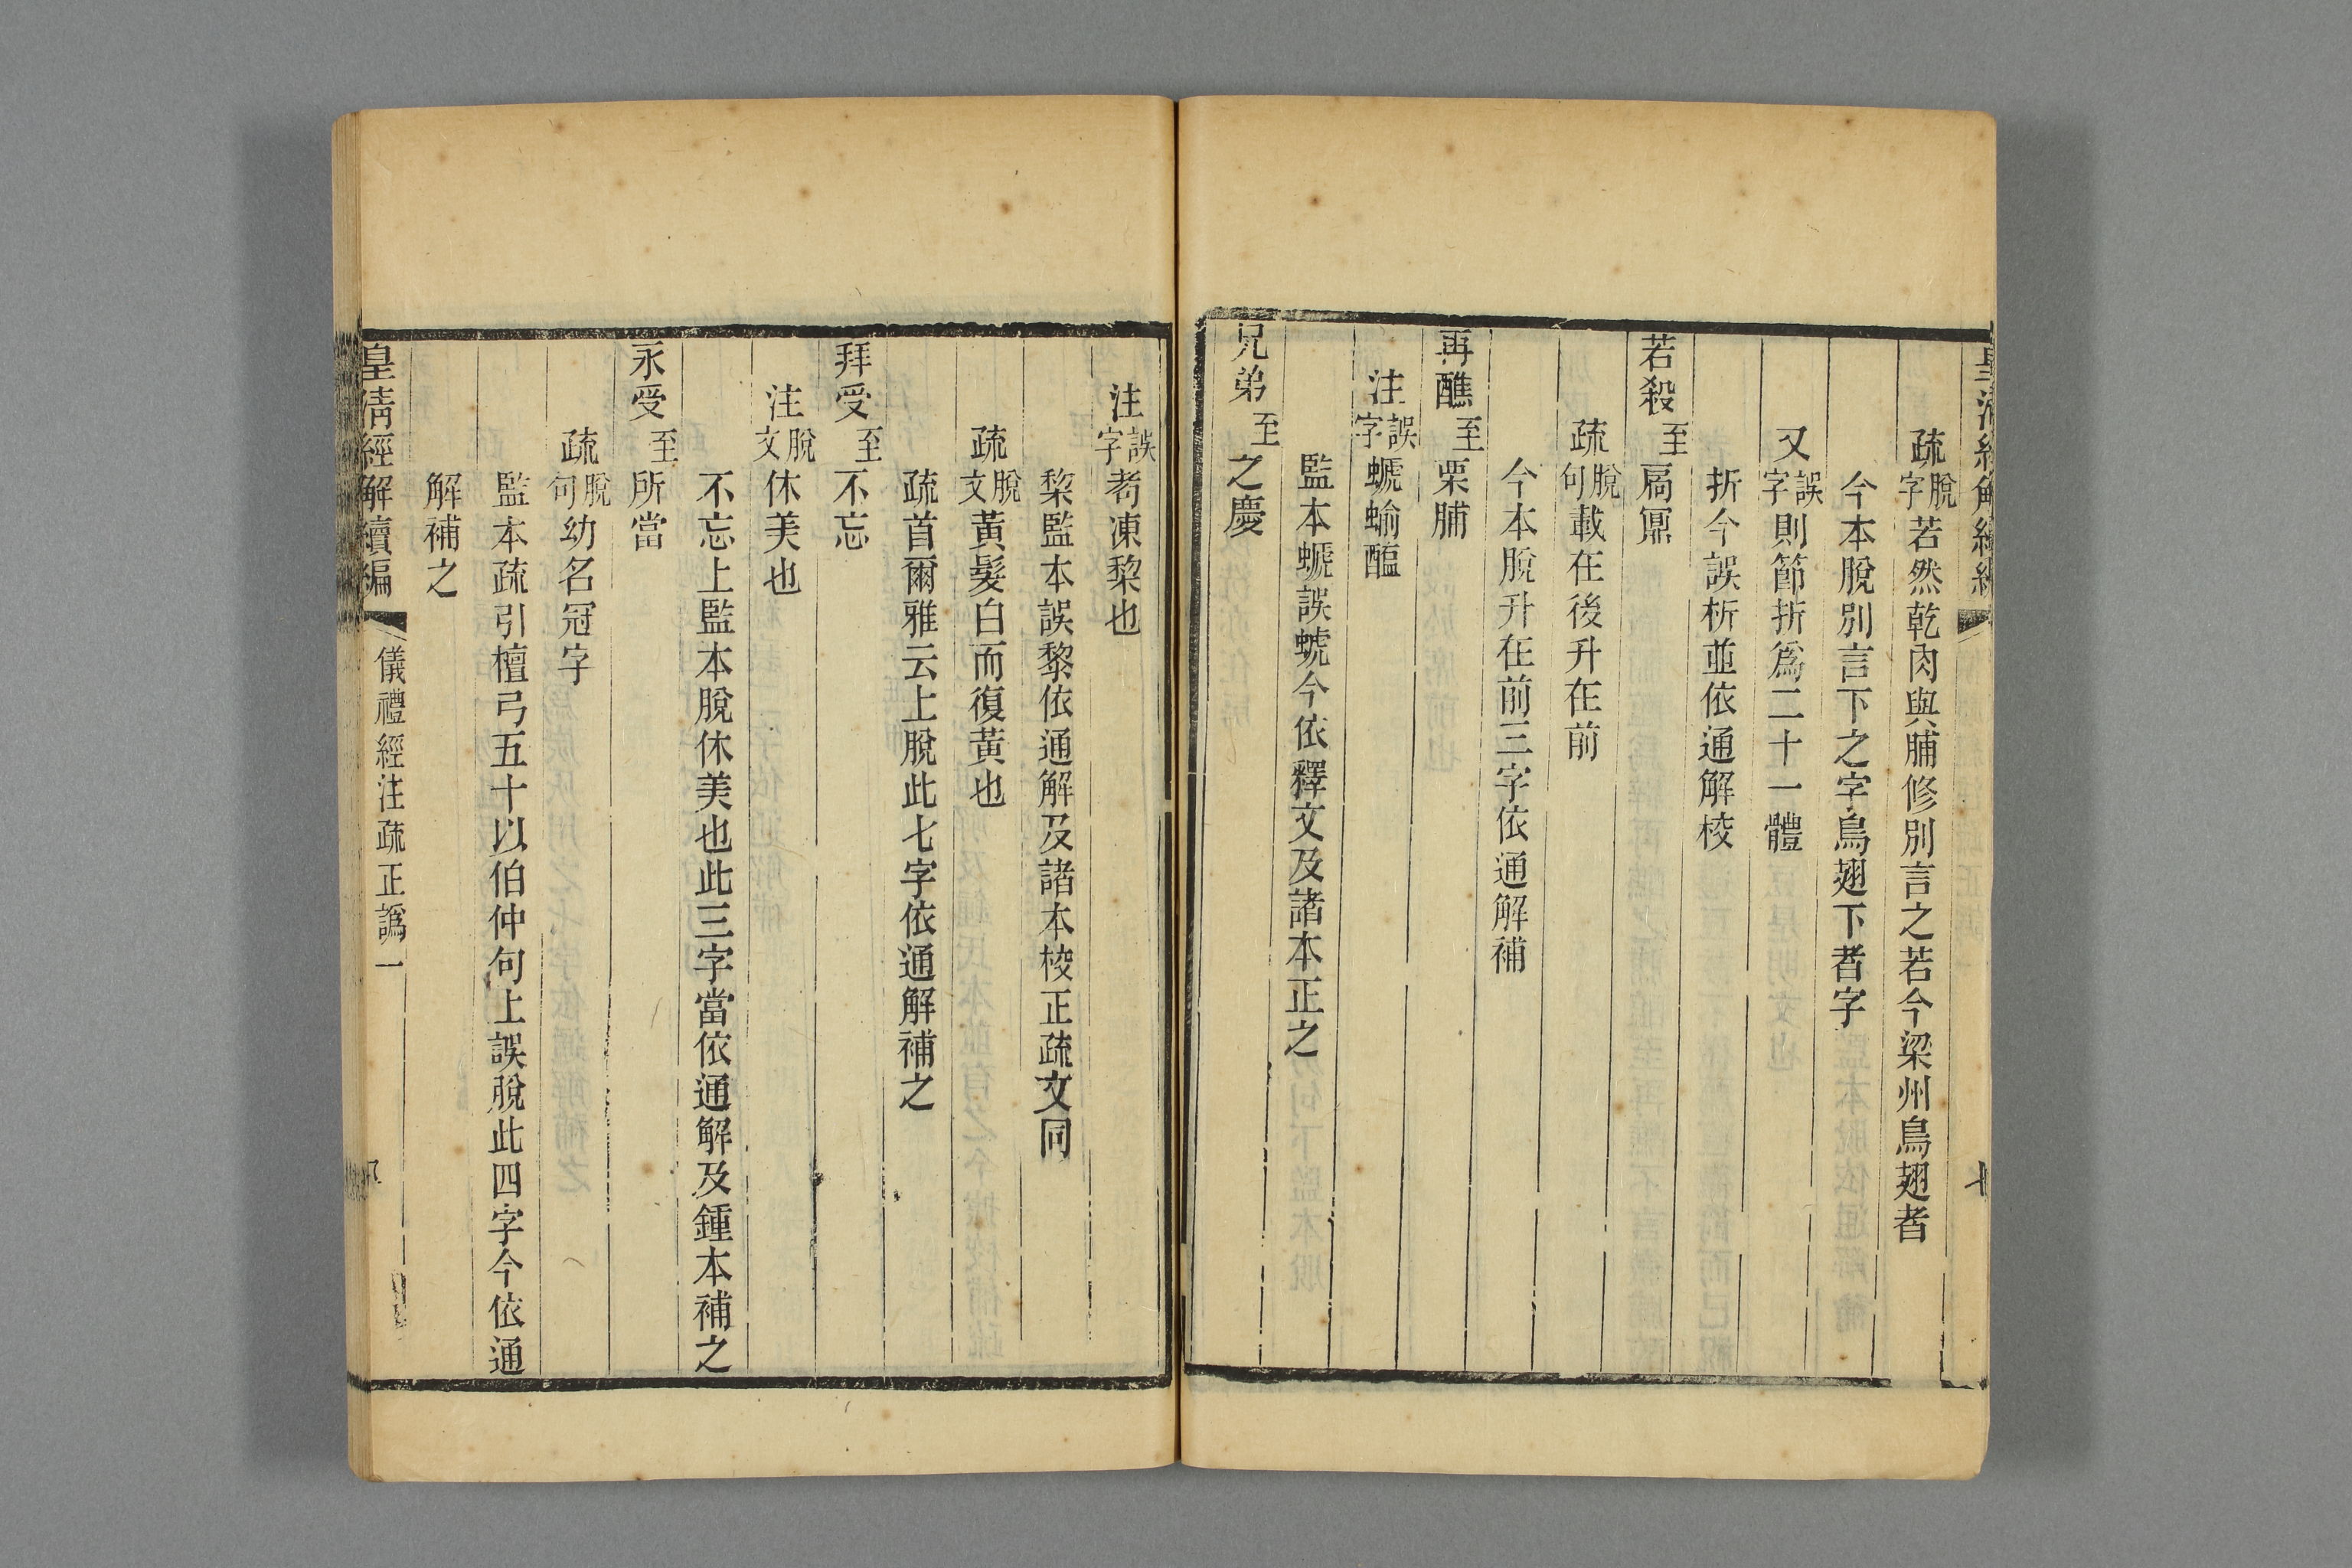 皇清經解續編
七
疏脫字若然乾肉與脯修別言之若今梁州鳥翅者
今本脫別言下之字鳥翅下者字
又誤字則節折爲二十一體
折今誤析並依通解校
若殺至扃鼏
疏脫句載在後升在前
今本脫升在前三字依通解補
再醮至栗脯
注誤字蠯蝓醢
監本蠯誤蠯今依釋文及諸本正之
兄弟至之慶
注誤字耇凍棃也
棃監本誤黎依通解及諸本校正疏文同
疏脫文黃髮白而復黃也
疏首爾雅云上脫此七字依通解補之
拜受至不忘
注脫文休美也
不忘上監本脫休美也此三字當依通解及鍾本補之
永受至所當
疏脫句幼名冠字
監本疏引檀弓五十以伯仲句上誤脫此四字今依通
解補之
皇清經解續編
儀禮經注疏正譌一